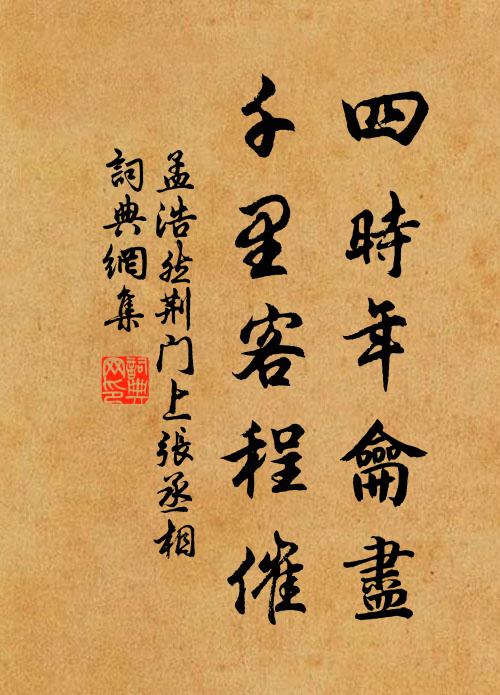 四時年龠盡
千里客程催
孟浩然荆门上張丞相
詞典網集
詞典网印